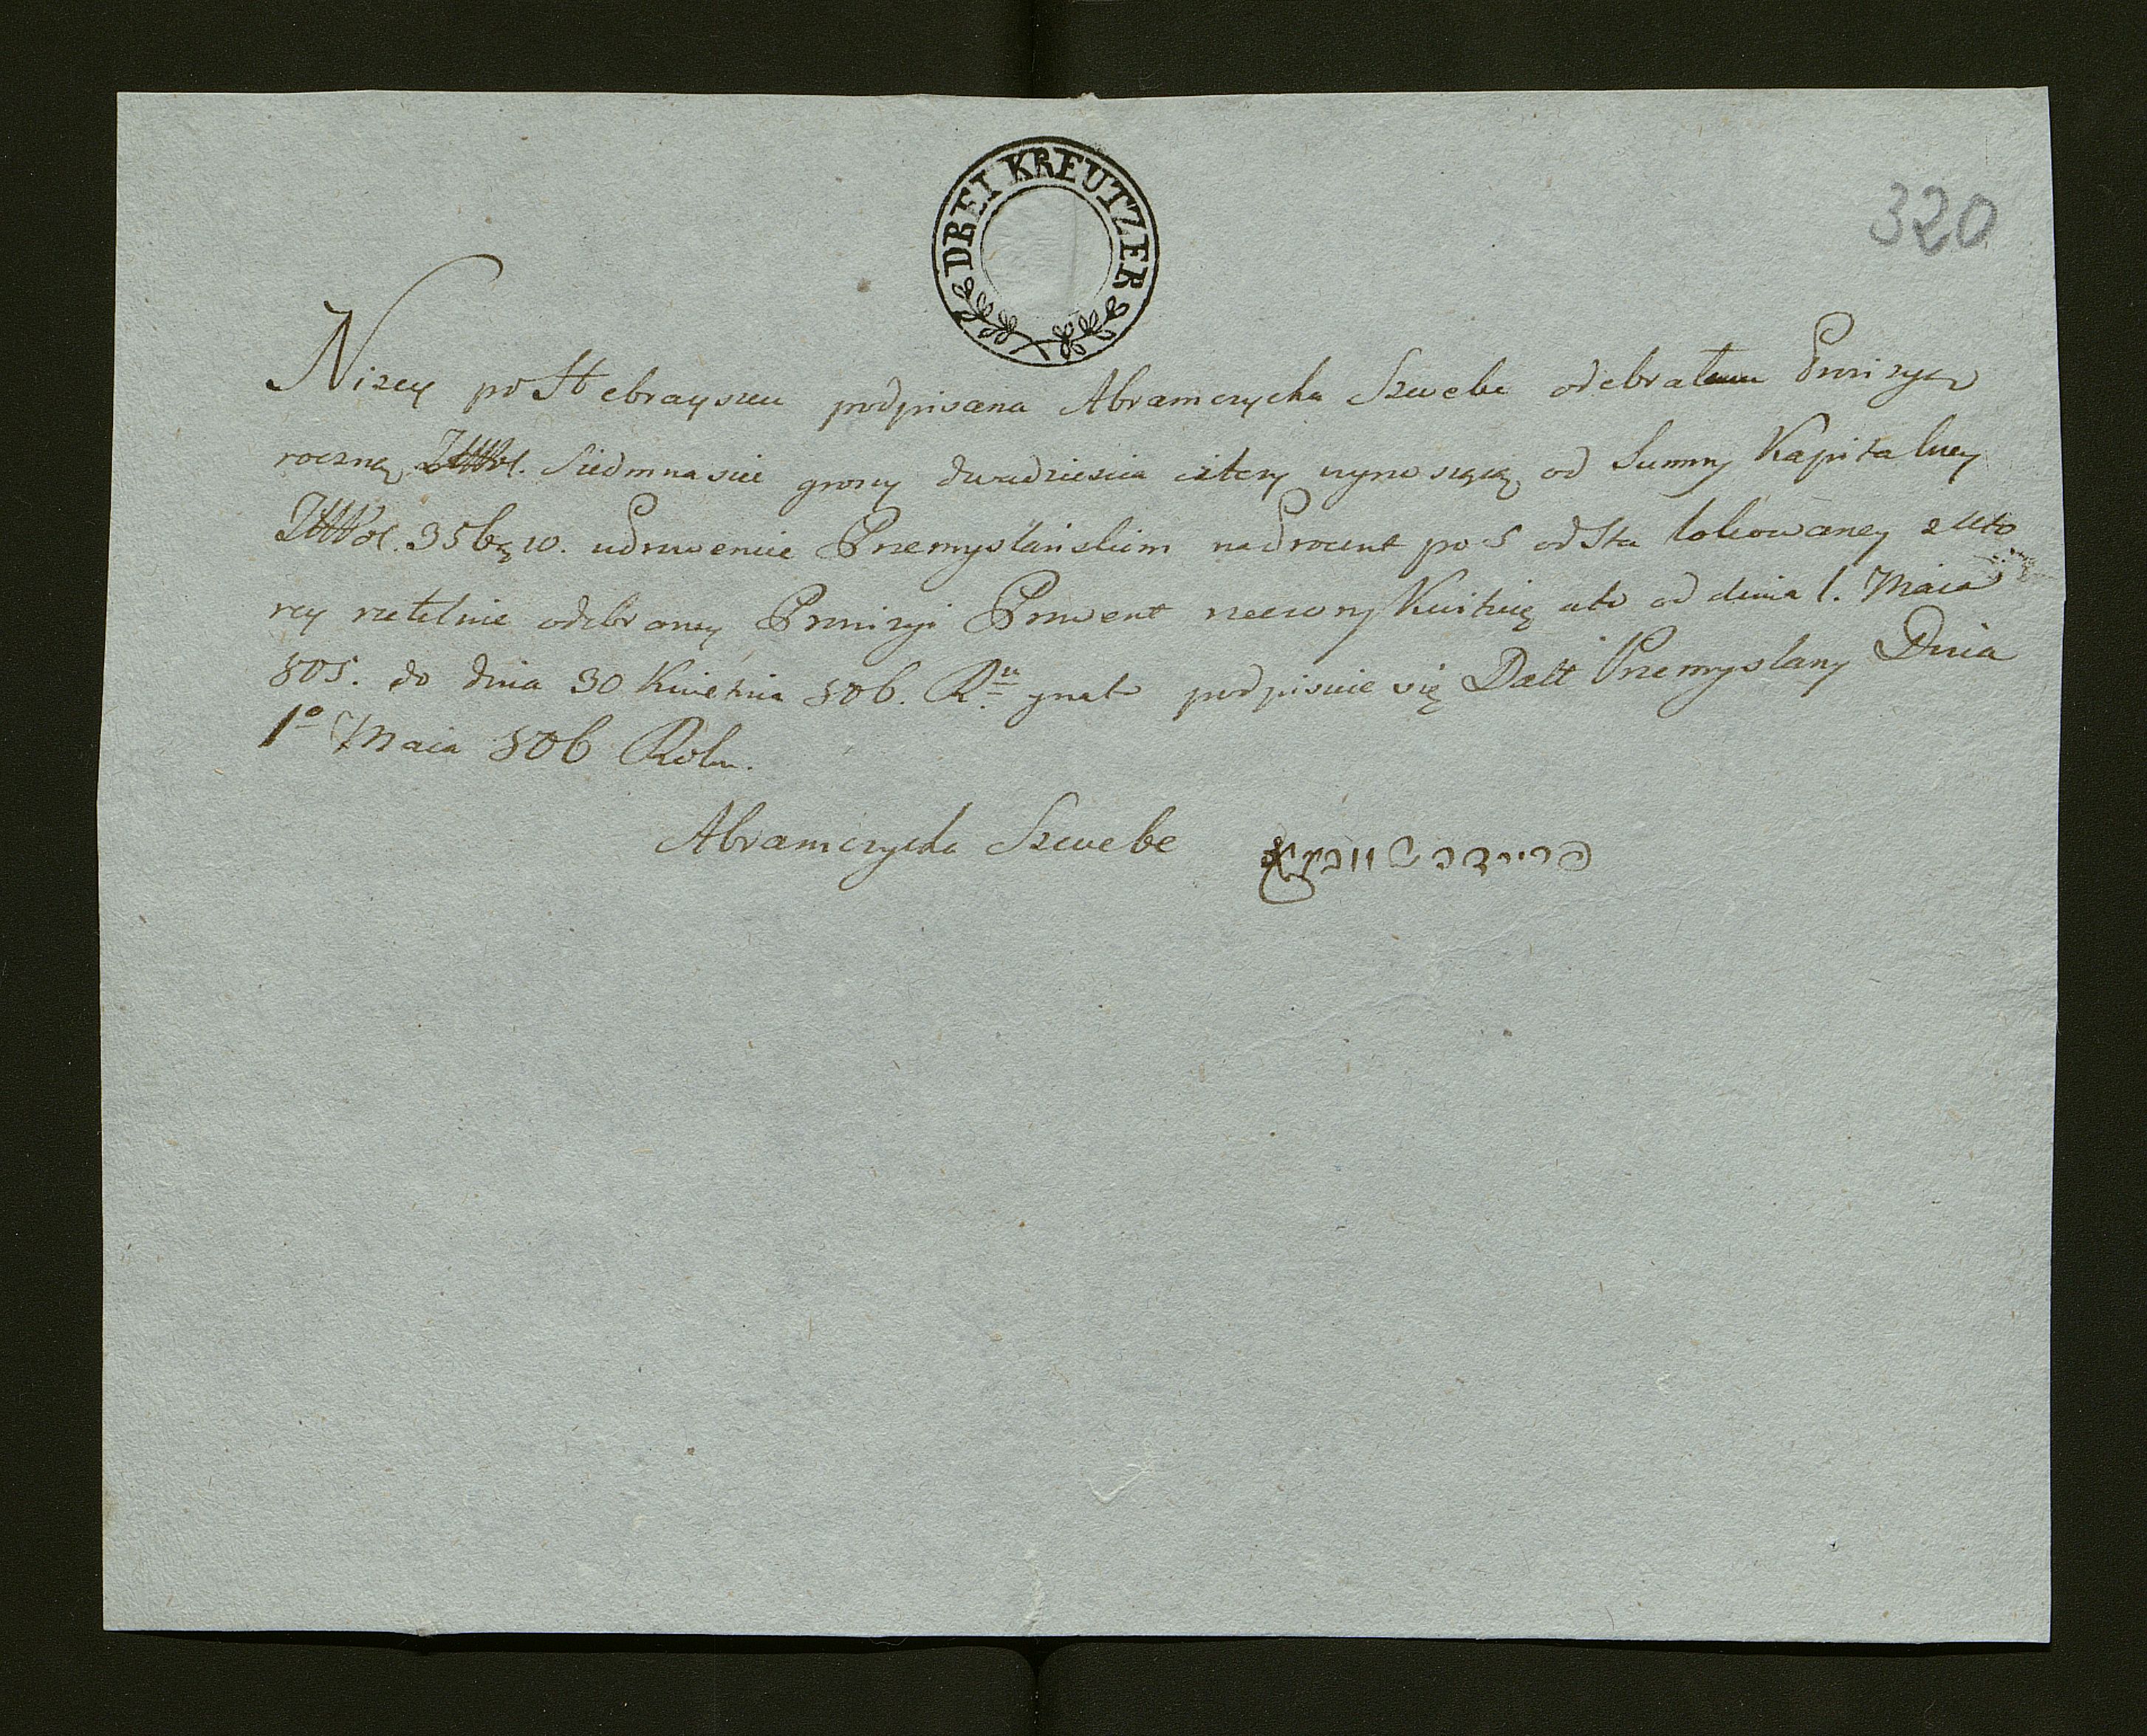 DREI KREUTZER
320
Nizey po Hebraysku podpisana Abramczycha Szwebe odebrałam Prowizyą
roczną ZłWPol. Siedmnascie groszy dwadziescia cztery wynoszącą od Summy Kapitalney
Pol. 356 gr 10. Przemyslańskim na Procent po 5 od Sta lokowaney z kto
rey rzetelnie odebraney Prowizyi Prowent rzeczony Kwituię a to od dnia 1. Maia
805. do dnia 30 Kwietnia 806. Rku. podpisuie się Datt Przemyslany Dnia
1o Maia 806 Roku.
Abramczycha Szwebe